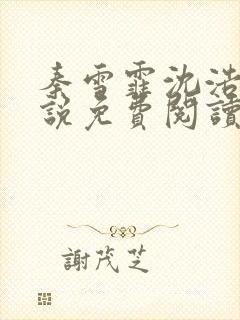 秦雪霏沈浩
說免費閱讀
謝茂芝